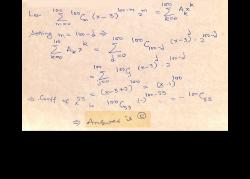 Let $\sum_{m=0}^{100} {}^{100}C_m (x-3)^{100-m} 2^m = \sum_{k=0}^{100} A_k x^k$
Setting m = 100-d ⇒
$\sum_{k=0}^{100} A_k x^k = \sum_{d=0}^{100} {}^{100}C_{100-d} (x-3)^d \cdot 2^{100-d}$
$= \sum_{d=0}^{100} {}^{100}C_d (x-3)^d \cdot 2^{100-d}$
$= (x-3+2)^{100} = (x-1)^{100}$
⇒ Coeff of $x^{53}$ is ${}^{100}C_{53} (-1)^{100-53} = -{}^{100}C_{53}$
⇒ Answer is ©